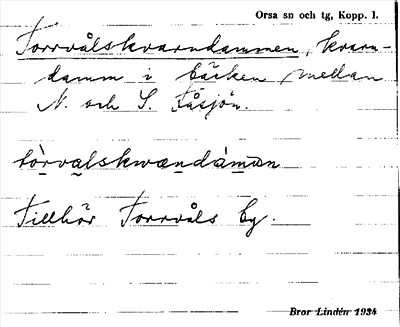 Orsa sn och tg, Kopp. l.
Torrvålskvarndammen, kvarn-
damm i bäcken mellan
N. och S. Fåsjön.
tòrvalskwæ̀ndámǝn
Tillhör Torrvåls by.
Bror Lindén 1934